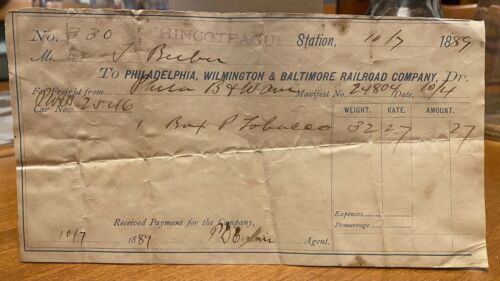 No. 330 CHINCOTEAGUE Station, 10/7 1889
M J Bieber
To PHILADELPHIA, WILMINGTON & BALTIMORE RAILROAD COMPANY, Dr.
For Freight from Phila Manifest No. 24804 Date, 10/4
Car No. 2546
WEIGHT. RATE. AMOUNT.
1 Box Tobacco 32 27 27
Expenses
Demurrage
Received Payment for the Company,
10/7 1889 Agent.